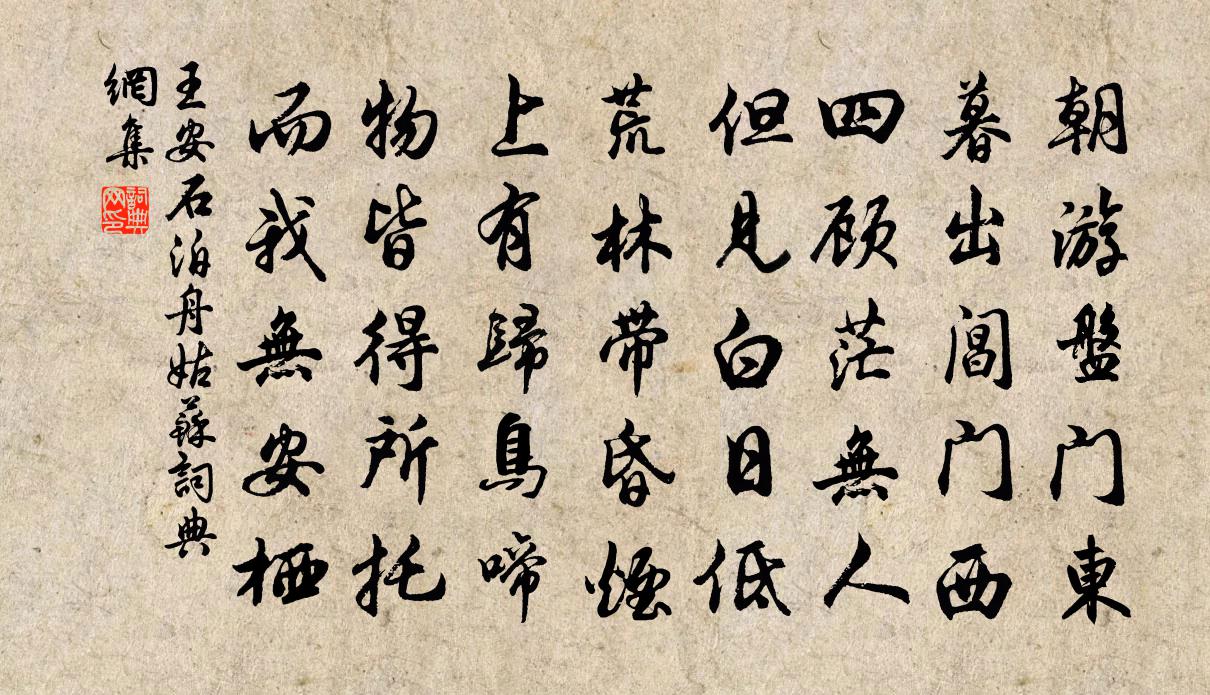 朝游盤门東
暮出閶门西
四顾茫無人
但見白日低
荒林带昏煙
上有歸鳥啼
物皆得所托
而我無安栖
王安石泊舟姑蘇詞典
網集
詞典
网印